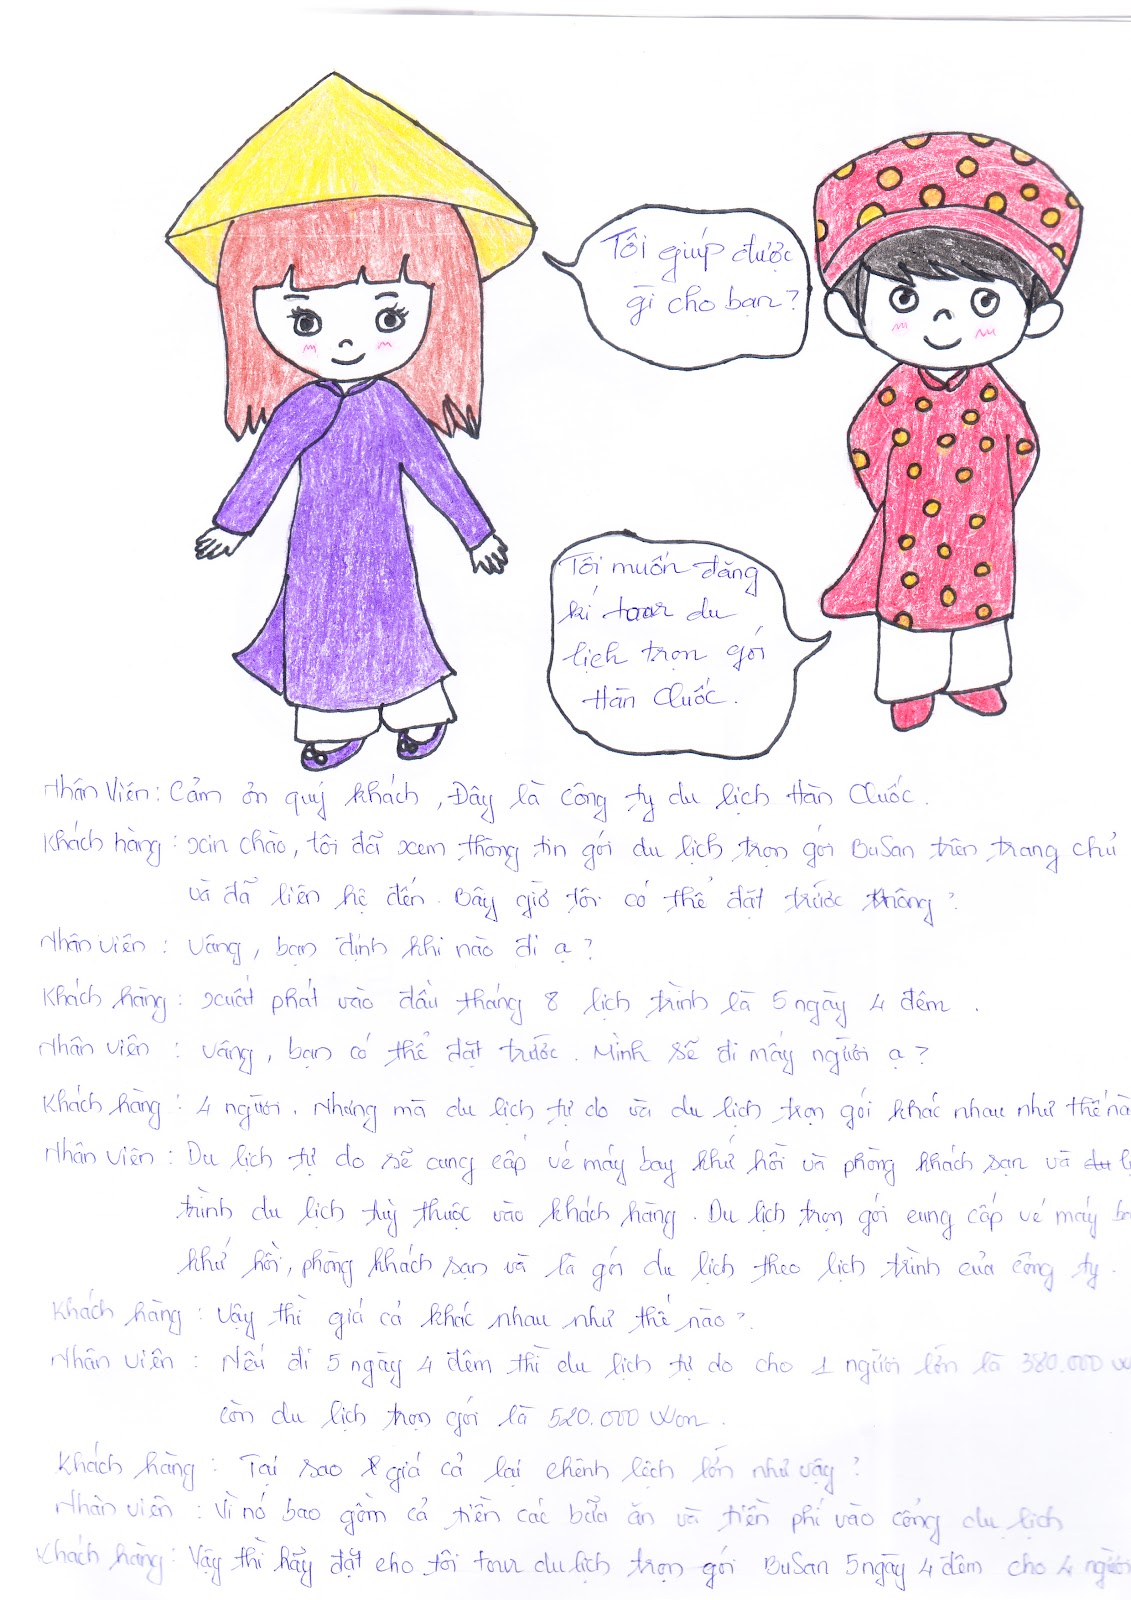 Tôi giúp được
gì cho bạn?
Tôi muốn đăng
kí tour du
lịch trọn gói
Hàn Quốc.
Nhân Viên: Cảm ơn quý khách, Đây là công ty du lịch Hàn Quốc.
Khách hàng: xin chào, tôi đã xem thông tin gói du lịch trọn gói BuSan trên trang chủ
và đã liên hệ đến. Bây giờ tôi có thể đặt trước không?
Nhân viên: Vâng, bạn định khi nào đi ạ?
Khách hàng: xuất phát vào đầu tháng 8 lịch trình là 5 ngày 4 đêm.
Nhân viên: Vâng, bạn có thể đặt trước. Mình sẽ đi mấy người ạ?
Khách hàng: 4 người. Nhưng mà du lịch tự do và du lịch trọn gói khác nhau như thế nà
Nhân viên: Du lịch tự do sẽ cung cấp vé máy bay khứ hồi và phòng khách sạn và du l
trình du lịch tuỳ thuộc vào khách hàng. Du lịch trọn gói cung cấp vé máy ba
khứ hồi, phòng khách sạn và là gói du lịch theo lịch trình của công ty.
Khách hàng: Vậy thì giá cả khác nhau như thế nào?
Nhân viên: Nếu đi 5 ngày 4 đêm thì du lịch tự do cho 1 người lớn là 380.000 w
còn du lịch trọn gói là 520.000 won.
Khách hàng: Tại sao giá cả lại chênh lệch lớn như vậy?
Nhân viên: Vì nó bao gồm cả tiền các bữa ăn và tiền phí vào cổng du lịch
Khách hàng: Vậy thì hãy đặt cho tôi tour du lịch trọn gói BuSan 5 ngày 4 đêm cho 4 người